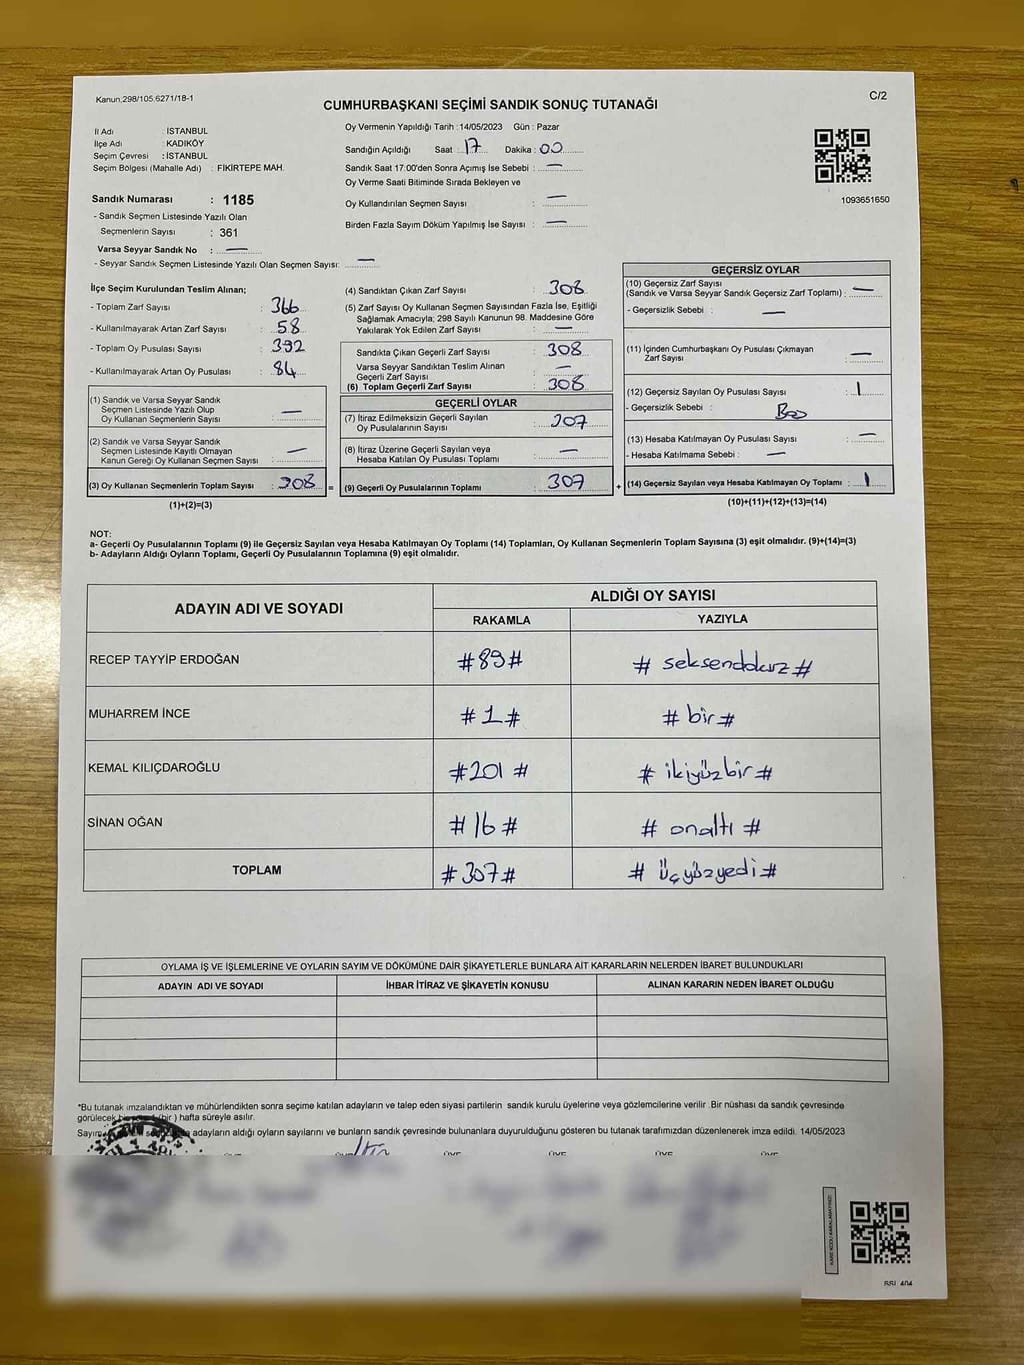 Kanun;298/105,6271/18-1
C/2
CUMHURBAŞKANI SEÇİMİ SANDIK SONUÇ TUTANAĞI
İl Adı : İSTANBUL
İlçe Adı : KADIKÖY
Seçim Çevresi : İSTANBUL
Seçim Bölgesi (Mahalle Adı) : FİKİRTEPE MAH.
Sandık Numarası : 1185
- Sandık Seçmen Listesinde Yazılı Olan
Seçmenlerin Sayısı : 361
Varsa Seyyar Sandık No : —
- Seyyar Sandık Seçmen Listesinde Yazılı Olan Seçmen Sayısı: —
Oy Vermenin Yapıldığı Tarih :14/05/2023 Gün : Pazar
Sandığın Açıldığı Saat : 17 Dakika : 00
Sandık Saat 17.00'den Sonra Açımış İse Sebebi : —
Oy Verme Saati Bitiminde Sırada Bekleyen ve
Oy Kullandırılan Seçmen Sayısı : —
Birden Fazla Sayım Döküm Yapılmış İse Sayısı : —
1093651650
İlçe Seçim Kurulundan Teslim Alınan;
- Toplam Zarf Sayısı : 366
- Kullanılmayarak Artan Zarf Sayısı : 58
- Toplam Oy Pusulası Sayısı : 392
- Kullanılmayarak Artan Oy Pusulası : 84
(1) Sandık ve Varsa Seyyar Sandık
Seçmen Listesinde Yazılı Olup
Oy Kullanan Seçmenlerin Sayısı : —
(2) Sandık ve Varsa Seyyar Sandık
Seçmen Listesinde Kayıtlı Olmayan
Kanun Gereği Oy Kullanan Seçmen Sayısı : —
(3) Oy Kullanan Seçmenlerin Toplam Sayısı : 308 =
(1)+(2)=(3)
(4) Sandıktan Çıkan Zarf Sayısı : 308
(5) Zarf Sayısı Oy Kullanan Seçmen Sayısından Fazla İse, Eşitliği
Sağlamak Amacıyla; 298 Sayılı Kanunun 98. Maddesine Göre
Yakılarak Yok Edilen Zarf Sayısı : —
Sandıkta Çıkan Geçerli Zarf Sayısı : 308
Varsa Seyyar Sandıktan Teslim Alınan
Geçerli Zarf Sayısı : —
(6) Toplam Geçerli Zarf Sayısı : 308
GEÇERLİ OYLAR
(7) İtiraz Edilmeksizin Geçerli Sayılan
Oy Pusulalarının Sayısı : 307
(8) İtiraz Üzerine Geçerli Sayılan veya
Hesaba Katılan Oy Pusulası Toplamı : —
(9) Geçerli Oy Pusulalarının Toplamı : 307 +
GEÇERSİZ OYLAR
(10) Geçersiz Zarf Sayısı
(Sandık ve Varsa Seyyar Sandık Geçersiz Zarf Toplamı) : —
- Geçersizlik Sebebi : —
(11) İçinden Cumhurbaşkanı Oy Pusulası Çıkmayan
Zarf Sayısı : —
(12) Geçersiz Sayılan Oy Pusulası Sayısı : 1
- Geçersizlik Sebebi :
(13) Hesaba Katılmayan Oy Pusulası Sayısı : —
- Hesaba Katılmama Sebebi : —
(14) Geçersiz Sayılan veya Hesaba Katılmayan Oy Toplamı : 1
(10)+(11)+(12)+(13)=(14)
NOT:
a- Geçerli Oy Pusulalarının Toplamı (9) ile Geçersiz Sayılan veya Hesaba Katılmayan Oy Toplamı (14) Toplamları, Oy Kullanan Seçmenlerin Toplam Sayısına (3) eşit olmalıdır. (9)+(14)=(3)
b- Adayların Aldığı Oyların Toplamı, Geçerli Oy Pusulalarının Toplamına (9) eşit olmalıdır.
ADAYIN ADI VE SOYADI
ALDIĞI OY SAYISI
RAKAMLA YAZIYLA
RECEP TAYYİP ERDOĞAN #89# # seksendokuz #
MUHARREM İNCE #1# # bir #
KEMAL KILIÇDAROĞLU #201 # # ikiyüzbir #
SİNAN OĞAN #16# # onaltı #
TOPLAM #307# # üçyüzyedi #
OYLAMA İŞ VE İŞLEMLERİNE VE OYLARIN SAYIM VE DÖKÜMÜNE DAİR ŞİKAYETLERLE BUNLARA AİT KARARLARIN NELERDEN İBARET BULUNDUKLARI
ADAYIN ADI VE SOYADI İHBAR İTİRAZ VE ŞİKAYETİN KONUSU ALINAN KARARIN NEDEN İBARET OLDUĞU
*Bu tutanak imzalandıktan ve mühürlendikten sonra seçime katılan adayların ve talep eden siyasi partilerin sandık kurulu üyelerine veya gözlemcilerine verilir .Bir nüshası da sandık çevresinde
görülecek (bir ) hafta süreyle asılır.
adayların aldığı oyların sayılarını ve bunların sandık çevresinde bulunanlara duyurulduğunu gösteren bu tutanak tarafımızdan düzenlenerek imza edildi. 14/05/2023
ÜYE ÜYE ÜYE ÜYE